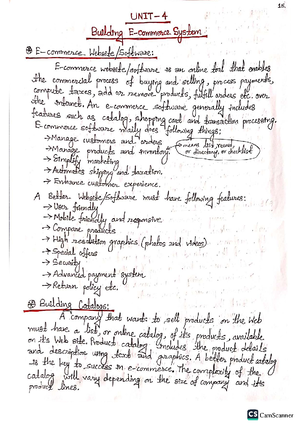 18.
UNIT-4
Building E-commerce System
E-commerce Website/Software:
E-commerce website/software is an online tool that enables
the commercial process of buying and selling, process payments,
compute taxes, add or remove products, fulfill orders etc. over
the internet. An e-commerce software generally includes
features such as catalog, shopping cart and transaction processing.
E-commerce software mainly does following things:
→ Manage customers and orders
→ Manage products and inventory → means list, record,
or directory, or checklist
→ Simplify marketing
→ Automates shipping and taxation
→ Enhance customer experience.
A Better Website/Software must have following features:
→ User friendly
→ Mobile friendly and responsive
→ Compare products
→ High resolution graphics (photos and videos)
→ Special offers
→ Security
→ Advanced payment system
→ Return policy etc.
Building Catalog:
A company that wants to sell products on the Web
must have a list, or online catalog, of its products, available
on its Web site. Product catalog includes the product details
and description using text and graphics. A better product catalog
is the key to success in e-commerce. The complexity of the
catalog will vary depending on the size of company and its
product lines.
CS CamScanner